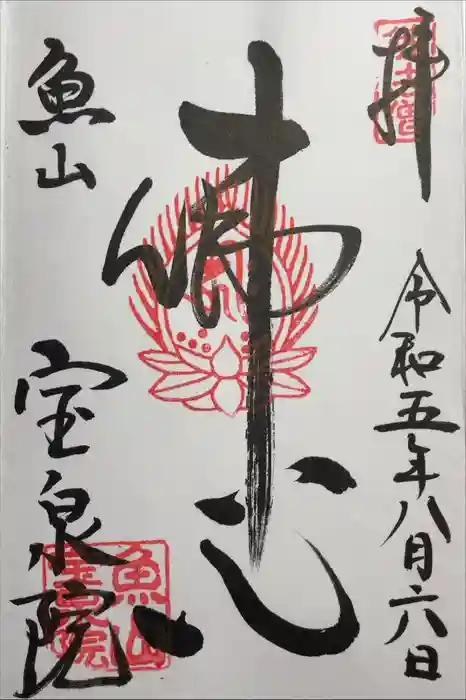 拝
令和五年八月六日
佛心
魚山
宝泉院
魚山
宝泉院